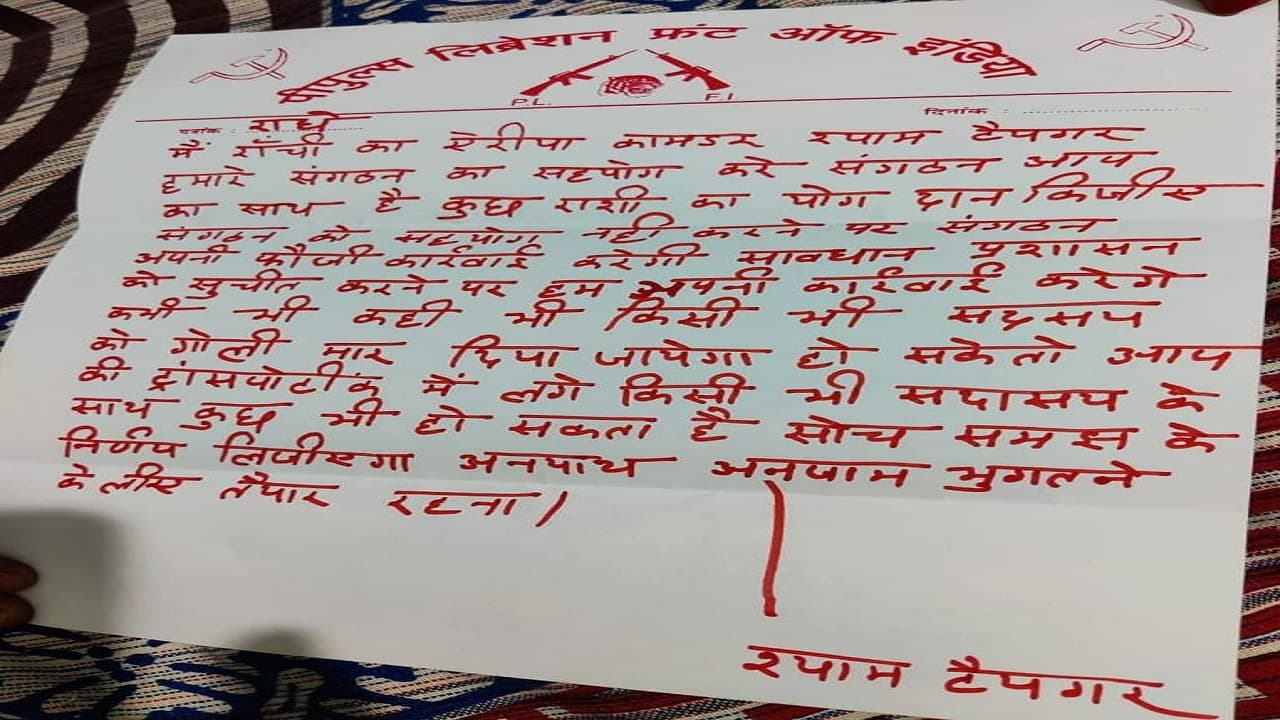 पीपुल्स लिब्रेशन फ्रंट ऑफ इंडिया
P.L. F.I.
पत्रांक : दिनांक :
राधे
मैं राँची का ऐरीया कामडर श्याम टैपगर
हमारे संगठन का सहयोग करे संगठन आप
का साथ है कुछ राशी का योग दान किजीए
संगठन को सहयोग नही करने पर संगठन
अपनी फौजी कार्रवाई करेगी सावधान प्रशासन
को सुचीत करने पर हम अपनी कार्रवाई करेगे
कभी भी कही भी किसी भी सदसय
को गोली मार दिया जायेगा हो सके तो आप
की ट्रांसपोटींक में लगे किसी भी सदासय के
साथ कुछ भी हो सकता है सोच समझ के
निर्णय लिजीएगा अनयाथ अनजाम भुगतने
के लीए तैयार रहना।
श्याम टैपगर